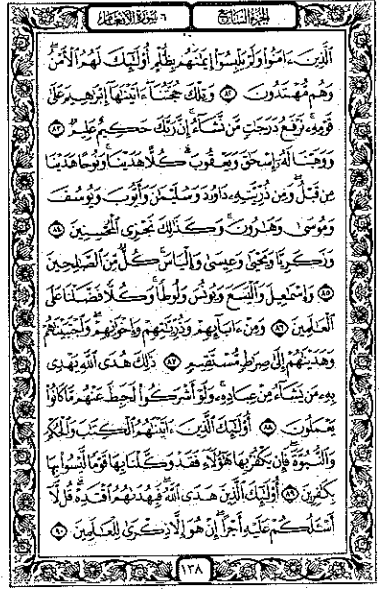 الجزء السابع ٦ سورة الأنعام
ٱلَّذِينَ ءَامَنُوا۟ وَلَمْ يَلْبِسُوٓا۟ إِيمَٰنَهُم بِظُلْمٍ أُو۟لَٰٓئِكَ لَهُمُ ٱلْأَمْنُ
وَهُم مُّهْتَدُونَ ٨٢ وَتِلْكَ حُجَّتُنَآ ءَاتَيْنَٰهَآ إِبْرَٰهِيمَ عَلَىٰ
قَوْمِهِۦ نَرْفَعُ دَرَجَٰتٍ مَّن نَّشَآءُ إِنَّ رَبَّكَ حَكِيمٌ عَلِيمٌ ٨٣
وَوَهَبْنَا لَهُۥٓ إِسْحَٰقَ وَيَعْقُوبَ كُلًّا هَدَيْنَا وَنُوحًا هَدَيْنَا
مِن قَبْلُ وَمِن ذُرِّيَّتِهِۦ دَاوُۥدَ وَسُلَيْمَٰنَ وَأَيُّوبَ وَيُوسُفَ
وَمُوسَىٰ وَهَٰرُونَ وَكَذَٰلِكَ نَجْزِى ٱلْمُحْسِنِينَ ٨٤
وَزَكَرِيَّا وَيَحْيَىٰ وَعِيسَىٰ وَإِلْيَاسَ كُلٌّ مِّنَ ٱلصَّٰلِحِينَ
٨٥ وَإِسْمَٰعِيلَ وَٱلْيَسَعَ وَيُونُسَ وَلُوطًا وَكُلًّا فَضَّلْنَا عَلَى
ٱلْعَٰلَمِينَ ٨٦ وَمِنْ ءَابَآئِهِمْ وَذُرِّيَّٰتِهِمْ وَإِخْوَٰنِهِمْ وَٱجْتَبَيْنَٰهُمْ
وَهَدَيْنَٰهُمْ إِلَىٰ صِرَٰطٍ مُّسْتَقِيمٍ ٨٧ ذَٰلِكَ هُدَى ٱللَّهِ يَهْدِى
بِهِۦ مَن يَشَآءُ مِنْ عِبَادِهِۦ وَلَوْ أَشْرَكُوا۟ لَحَبِطَ عَنْهُم مَّا كَانُوا۟
يَعْمَلُونَ ٨٨ أُو۟لَٰٓئِكَ ٱلَّذِينَ ءَاتَيْنَٰهُمُ ٱلْكِتَٰبَ وَٱلْحُكْمَ
وَٱلنُّبُوَّةَ فَإِن يَكْفُرْ بِهَا هَٰٓؤُلَآءِ فَقَدْ وَكَّلْنَا بِهَا قَوْمًا لَّيْسُوا۟ بِهَا
بِكَٰفِرِينَ ٨٩ أُو۟لَٰٓئِكَ ٱلَّذِينَ هَدَى ٱللَّهُ فَبِهُدَىٰهُمُ ٱقْتَدِهْ قُل لَّآ
أَسْـَٔلُكُمْ عَلَيْهِ أَجْرًا إِنْ هُوَ إِلَّا ذِكْرَىٰ لِلْعَٰلَمِينَ ٩٠
١٣٨